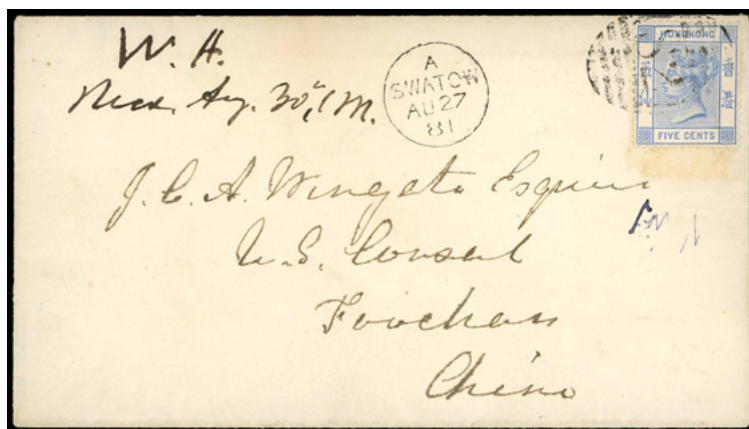 W. H.
Recd. Aug. 30, 1 M.
A
SWATOW
AU 27
81
HONG KONG
香港
FIVE CENTS
J. C. A. Wingate Esquire
U.S. Consul
Foochow
China